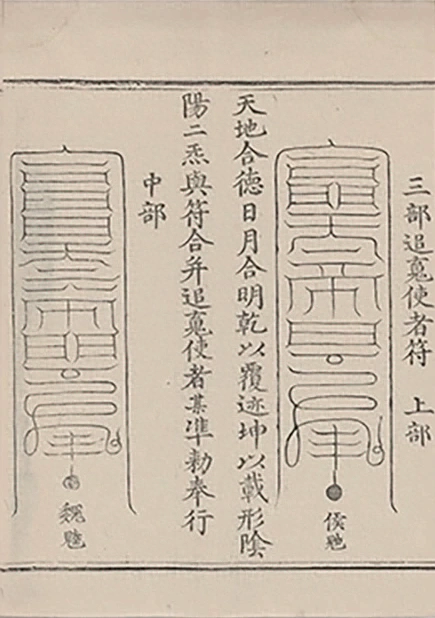 三部追䰟使者符 上部
侯
天地合德日月合明乾以覆迹坤以載形陰
陽二炁與符合并追䰟使者某準勑奉行
中部
魏